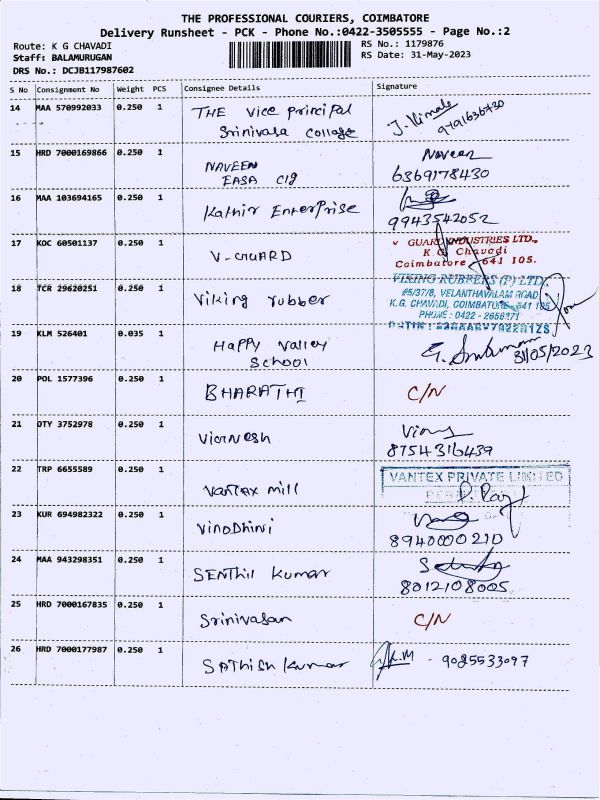 THE PROFESSIONAL COURIERS, COIMBATORE
Delivery Runsheet - PCK - Phone No.:0422-3505555 - Page No.:2
Route: K G CHAVADI
RS No.: 1179876
Staff: BALAMURUGAN
RS Date: 31-May-2023
DRS No.: DCJB117987602
S No Consignment No Weight PCS Consignee Details Signature
14 MAA 570992033 0.250 1 THE Vice principal
Srinivasa College
J. Vimala
9791636730
15 HRD 7000169866 0.250 1 NAVEEN
EASA clg
Naveen
6369178430
16 MAA 103694165 0.250 1 Kathir Enterprise
9943542052
17 KOC 60501137 0.250 1 V-GUARD
V GUARD INDUSTRIES LTD.,
K.G. Chavadi
Coimbatore - 641 105.
18 TCR 29620251 0.250 1 Viking rubber
VIKING RUBBERS (P) LTD.,
#5/37/8, VELANTHAVALAM ROAD
K.G. CHAVADI, COIMBATORE-641 105
PHONE : 0422 - 2656371
19 KLM 526401 0.035 1 Happy Valley
School
31/05/2023
20 POL 1577396 0.250 1 BHARATHI C/N
21 OTY 3752978 0.250 1 Vignesh
8754316439
22 TRP 6655589 0.250 1 Vantax mill
VANTEX PRIVATE LIMITED
23 KUR 694982322 0.250 1 Vinodhini
8940000210
24 MAA 943298351 0.250 1 SENTHIL Kumar
8012108005
25 HRD 7000167835 0.250 1 Srinivasan C/N
26 HRD 7000177987 0.250 1 SATHISH Kumar
K.M - 9025533097